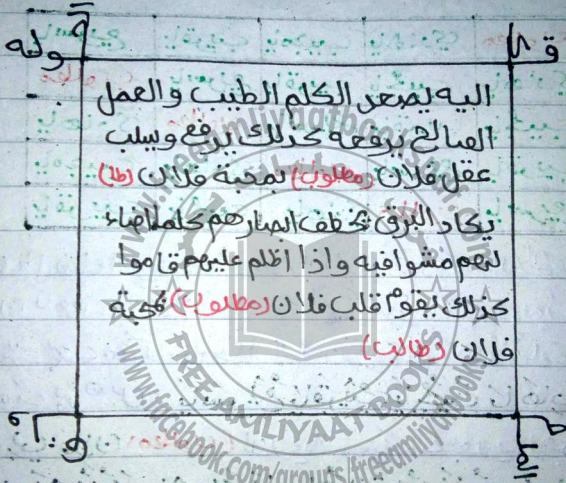 اليه يصعد الكلم الطيب والعمل
الصالح يرفعه كذلك يرفع ويسلب
عقل فلان (مطلوب) بمحبة فلان (طا)
يكاد البرق يخطف ابصارهم كلما اضاء
لهم مشوا فيه واذا اظلم عليهم قاموا
كذلك يقوم قلب فلان (مطلوب) بمحبة
فلان (طالب)
FREE AMLIYAAT BOOKS
www.facebook.com/groups/freeamliyaatbooks